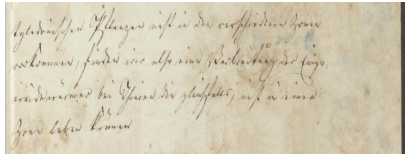 tyledonischen Pflanzen nicht in den verschiedenen Zonen
vorkommen, finden wir also eine Verbreitung der Einge-
weidewürmer bei Thieren die gleichfalls, nicht in einer
Zone leben können